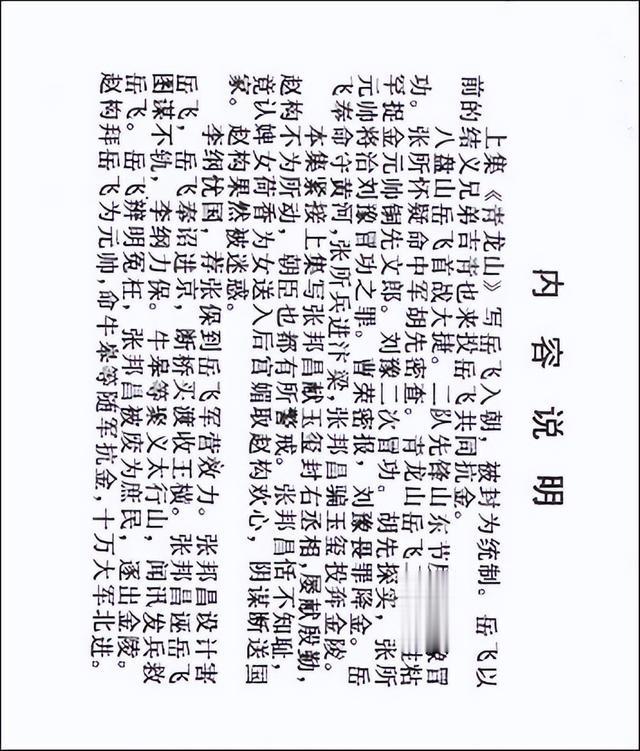 内容说明
上集《青龙山》写岳飞入朝，被封为统制。岳飞以
前的结义兄弟吉青也来投岳飞共同抗金。
八盘山岳飞首战大捷。二队先锋山东节豫冒
功。张所怀疑命中军胡先密查。青龙山岳飞粘
罕捉金元帅铜先文郎。刘豫二次冒功。胡先探实，张所
元帅将治刘豫冒功之罪。曹荣密报，刘豫畏罪降金。岳
飞奉命守黄河，张所兵进汴梁，张邦昌骗玉玺投奔金陵。
本集紧接上集写张邦昌献玉玺封右丞相，屡献殷勤，
赵构不为所动，朝臣也都有所警戒。张邦昌恬不知耻，
竟认婢女荷香为女送入后宫媚取赵构欢心，阴谋断送国
家。赵构果然被迷惑。
李纲忧国，荐张保到岳飞军营效力。张邦昌设计害
岳飞，岳飞奉诏进京，断桥买渡收王横。张邦昌诬岳飞
图谋不轨，李纲力保。牛皋等聚义太行山，闻讯发兵救
岳飞。岳飞辨明冤枉，张邦昌被废为庶民，逐出金陵。
赵构拜岳飞为元帅，命牛皋等随军抗金，十万大军北进。